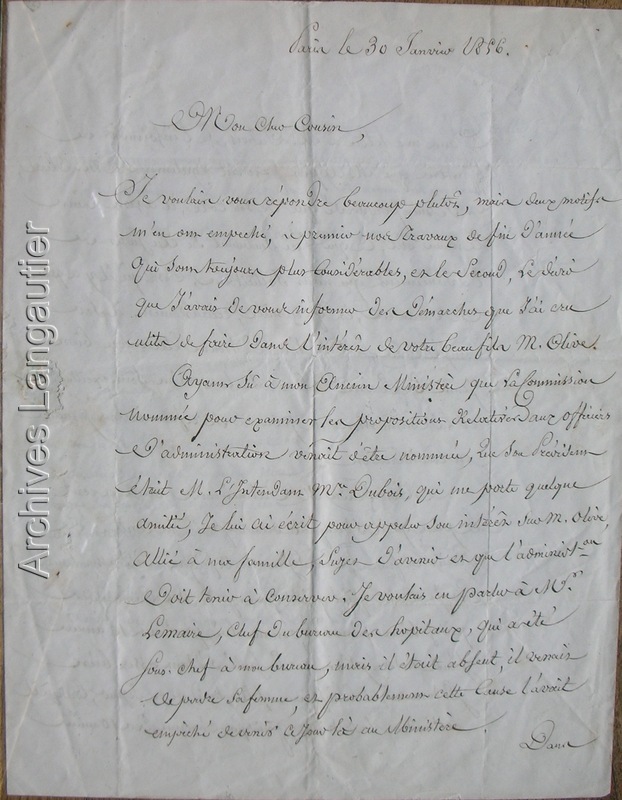 Paris le 30 Janvier 1856.
Mon cher Cousin,
Je voulais vous répondre beaucoup plutôt, mais deux motifs
m'en ont empeché, le premier nos travaux de fin d'année
qui sont toujours plus considérables, et le Second, le désir
que j'avais de vous informer des démarches que j'ai cru
utile de faire dans l'intérêt de votre beau fils M. Olive.
Ayant sû à mon Ancien Ministère que la Commission
nommée pour examiner les propositions Relatives aux officiers
D'administration venait d'être nommée, que son Président
était M. L'Intendant Mre. Dubois, qui me porte quelque
amitié, Je lui ai écrit pour appeler son intérêt sur M. Olive,
allié à ma famille, Sujet D'avenir et que l'administ.on
Doit tenir à conserver. Je voulais en parler à Mr.
Lemaire, Chef Du bureau Des hopitaux, qui a été
Sous-chef à mon bureau, mais il était absent, il venait
De perdre sa femme, et probablement cette Cause l'avait
empêché de venir ce jour là au Ministère.
Dans
Archives Langautier